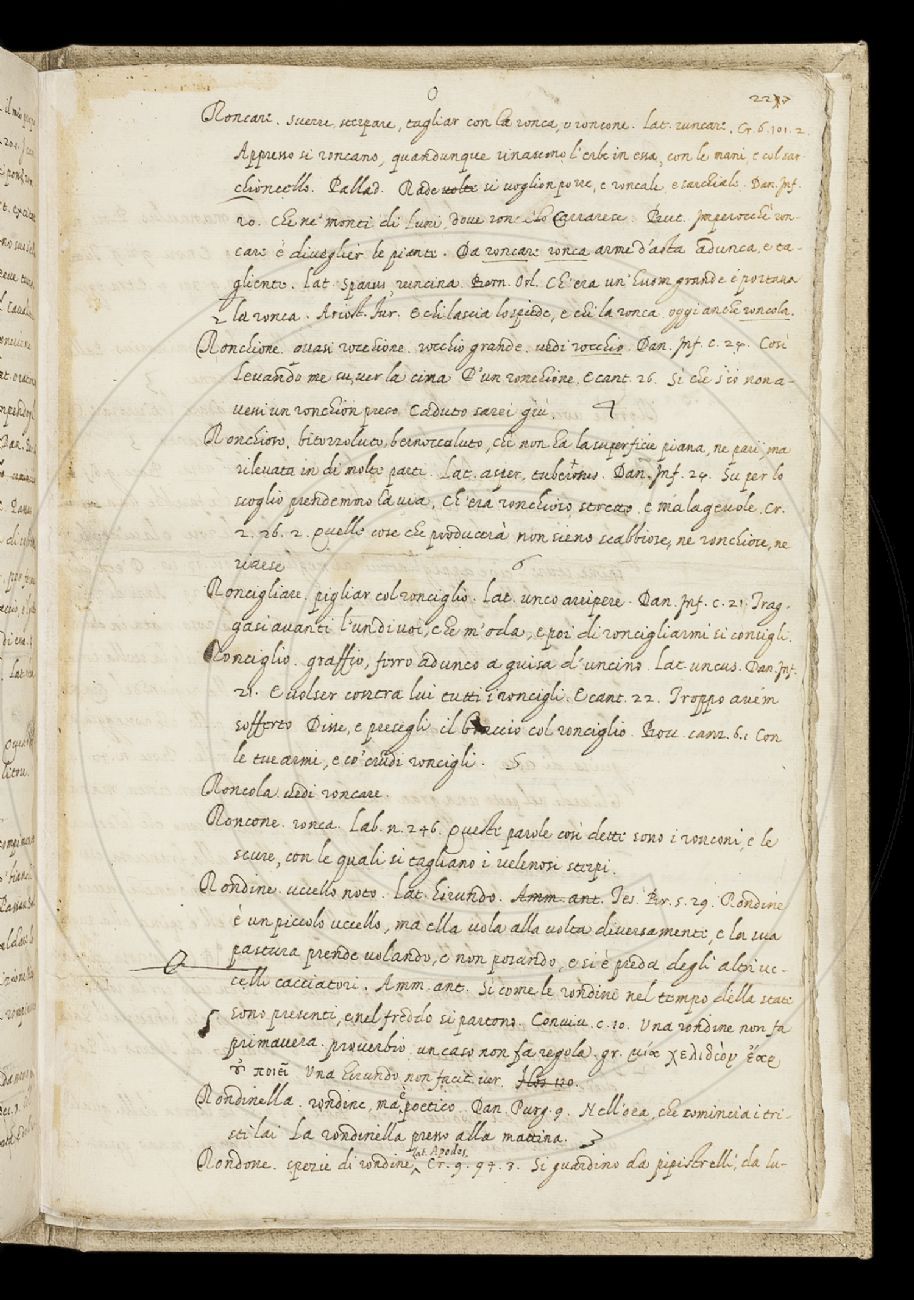 O
2217
Roncare. sverre sterpare, tagliar con la ronca, o roncone. Lat. runcare. Cr. 6. 101. 2.
Appresso si roncano, quandunque rinascono l'erbe in essa, con le mani, e col sar-
chioncello. Pallad. Rade volte si voglion porre, e roncale, e sarchiale. Dan. Inf.
20. Che ne' monti di Luni, dove ronca lo Carrarese. But. Imperocchè ron-
care è divegliere le piante. Da roncare ronca arme d'asta adunca, e ta-
gliente. Lat. sparus, runcina. Bern. Orl. Ch'era un'huom grande e portava
la ronca. Ariost. fur. E chi lascia lo spiede, e chi la ronca. oggi anche roncola.
Ronchione. quasi rocchione. rocchio grande. vedi rocchio. Dan. Inf. c. 24. Così
levando me su, ver la cima D'un ronchione. E cant. 26. Sì che s'io non a-
vessi un ronchion preso Caduto sarei giù. 4
Ronchioso, bitorzoluto, bernoccoluto, che non ha la superficie piana, ne pari, ma
rilevata in di molte parti. Lat. asper, tuberosus. Dan. Inf. 24. Su per lo
scoglio prendemmo la via, Ch'era ronchioso stretto, e malagevole. Cr.
2. 26. 2. Quelle cose che producerà non sieno scabbiose, ne ronchiose, ne
6
Roncigliare. pigliar col ronciglio. Lat. unco arripere. Dan. Inf. c. 21. Trag-
gasi avanti l'un di voi, che m'oda, e poi di roncigliarmi si consigli.
Ronciglio. graffio, ferro adunco a guisa d'uncino. Lat. uncus. Dan. Inf.
21. E volser contra lui tutti i roncigli. E cant. 22. Troppo avém
sofferto Disse, e presegli il braccio col ronciglio. Bocc. canz. 6. 1 Con
le tue armi, e co' crudi roncigli. 5
Roncola vedi roncare.
Roncone. ronca. Lab. n. 246. Queste parole così dette sono i ronconi, e le
scure, con le quali si tagliano i velenosi sterpi.
Rondine uccello noto. Lat. hirundo. Amm. ant. Tes. Br. 5. 29. Rondine
è un piccolo uccello, ma ella vola alla volta diversamente, e la sua
pastura prende volando, e non posando, e si è preda degli altri uc-
cello cacciatori. Amm. ant. Sì come le rondine nel tempo della state
sono presenti, e nel freddo si partono. Conviv. c. 10. Una rondine non fa
primavera. proverbio, un caso non fa regola. gr. μία χελιδὼν ἔαρ
οὐ ποιεῖ Una hirundo non facit ver.
Rondinella. rondine, ma è poetico. Dan. Purg. 9. Nell'ora, che comincia i tri-
sti lai La rondinella presso alla mattina. 3
Rondone. spezie di rondine, Lat. Apodes. Cr. 9. 94. 3. Si guardino da pipistrelli, da lu-